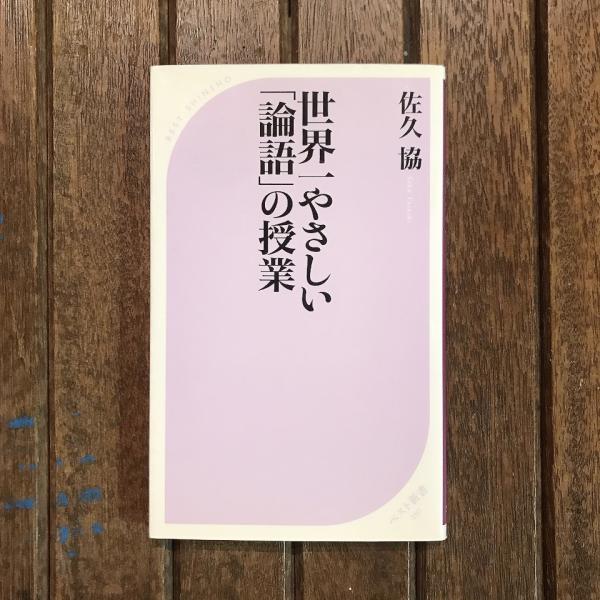 佐久 協
世界一やさしい
「論語」の授業
BEST SHINSHO
ベスト新書